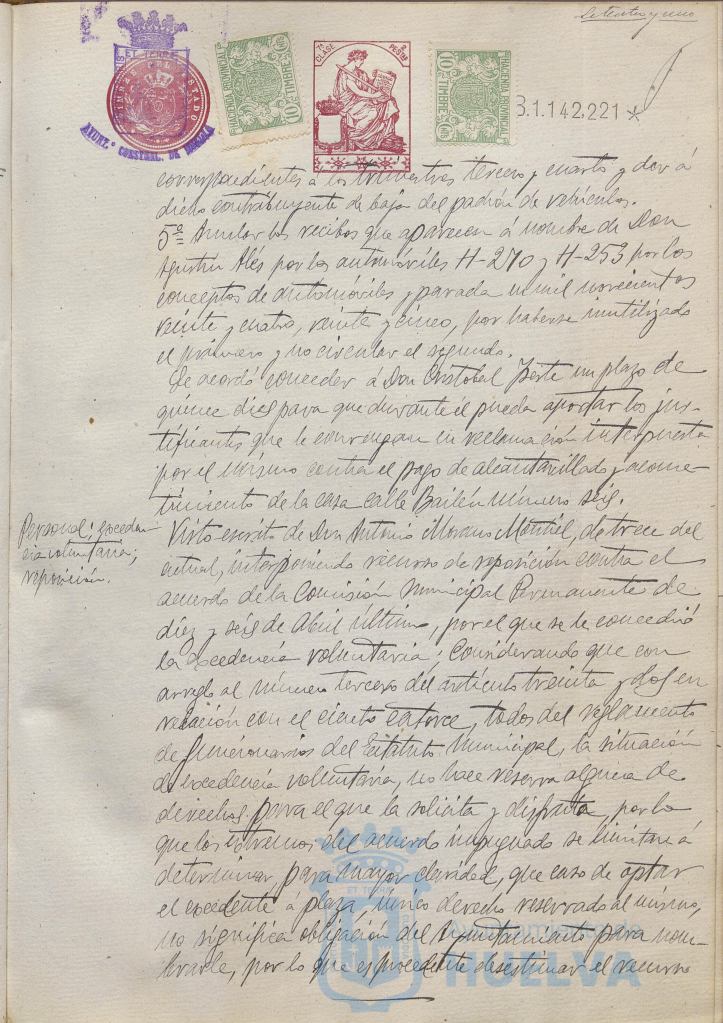 setenta y uno
TIMBRE DEL ESTADO
AYUNT.º CONSTNAL. DE HUELVA
HACIENDA PROVINCIAL
TIMBRE
10
7ª CLASE
PESETAS
HACIENDA PROVINCIAL
TIMBRE
10
B.1.142.221 *
correspondientes á los trimestres tercero y cuarto y dar á
dicho contribuyente de baja del padrón de vehículos.
5º= Anular los recibos que aparecen á nombre de Don
Agustín Alés por los automóviles H-270 y H-253 por los
conceptos de automóviles y parada en mil novecientos
veinte y cuatro, veinte y cinco, por haberse inutilizado
el primero y no circular el segundo.
Se acordó conceder á Don Cristobal un plazo de
quince días para que durante él pueda aportar los jus-
tificantes que le convengan en reclamación interpuesta
por el mismo contra el pago de alcantarillado y acome-
timiento de la casa calle Bailén número seis.
Personal; exceden-
cia voluntaria;
reposición.
Visto escrito de Don Antonio Moreno Montiel, de trece del
actual, interponiendo recurso de reposición contra el
acuerdo de la Comisión Municipal Permanente de
diez y seis de Abril último, por el que se le concedió
la excedencia voluntaria; Considerando que con
arreglo al número tercero del artículo treinta y dos en
relación con el ciento catorce, todos del reglamento
de funcionarios del Estatuto Municipal, la situación
de excedencia voluntaria, no hace reserva alguna de
derechos para el que la solicita y disfruta, por lo
que los extremos del acuerdo impugnado se limitan á
determinar, para mayor claridad, que caso de optar
el excedente a plaza, único derecho reservado al mismo,
no significa obligación del Ayuntamiento para nom-
brarle, por lo que es procedente desestimar el recurso
HUELVA